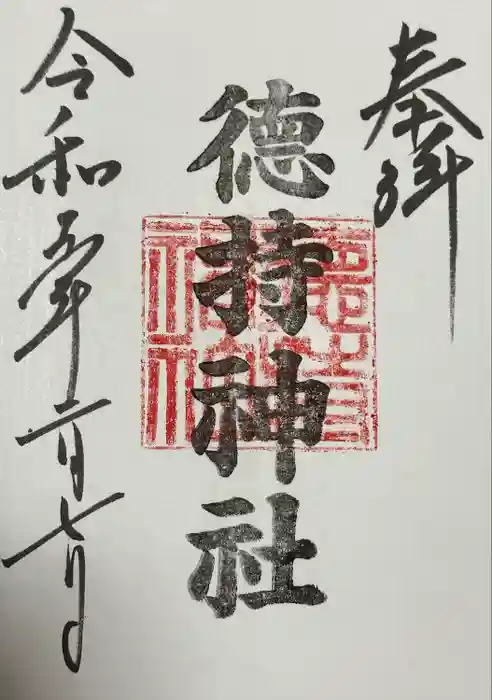 奉拝
徳持神社
令和五年二月七日